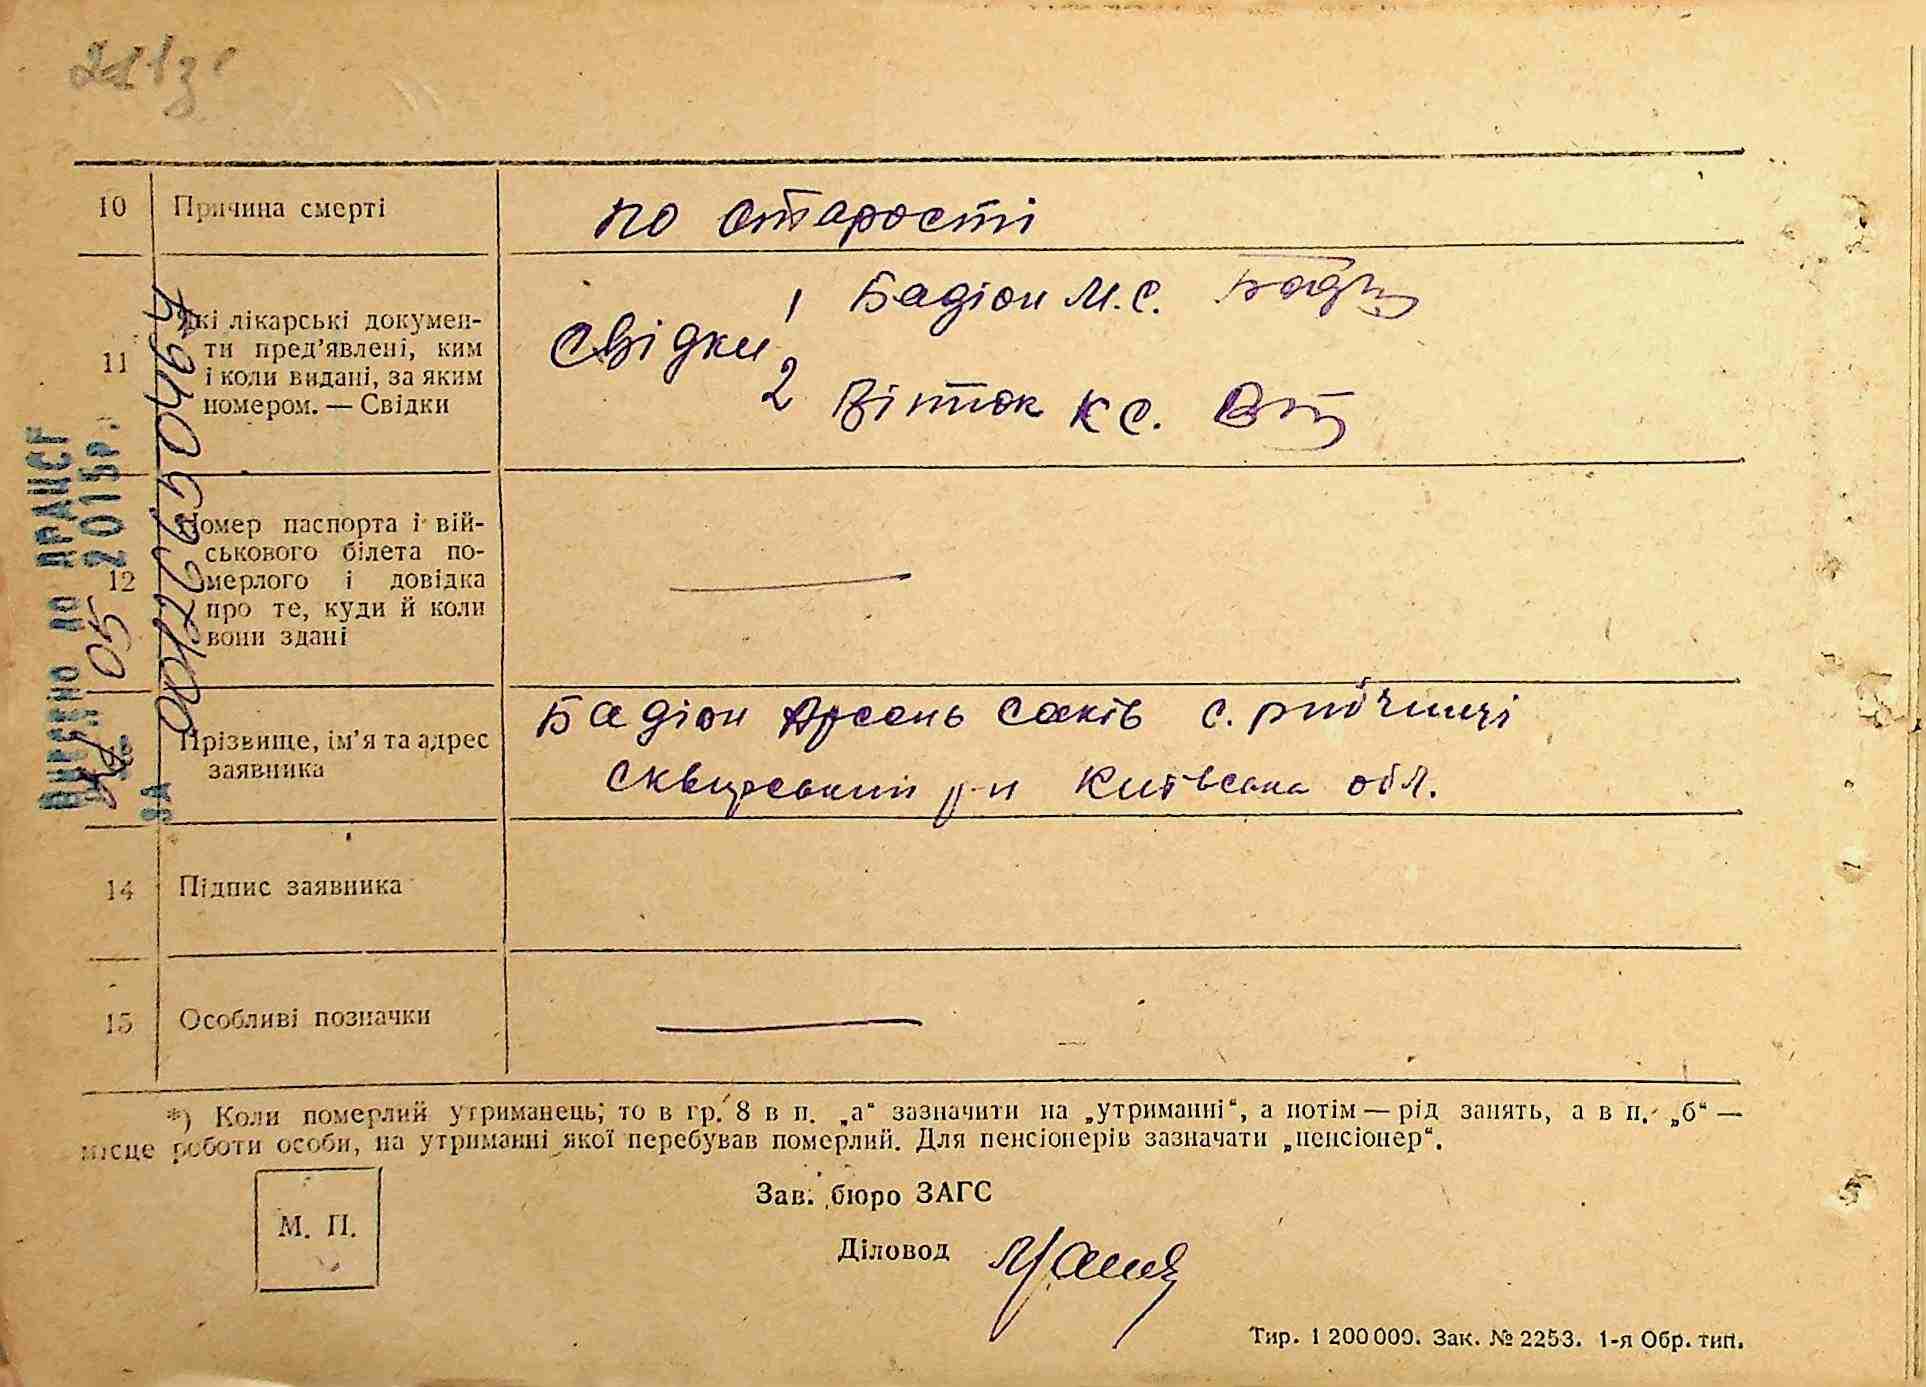 10 Причина смерті по старості
11 Які лікарські докумен-
ти пред’явлені, ким
і коли видані, за яким
номером. — Свідки
Свідки 1 Бадіон М.С.
2 Вітюк К С.
12 Номер паспорта і вій-
ськового білета по-
мерлого і довідка
про те, куди й коли
вони здані
Прізвище, ім’я та адрес
заявника
Бадіон Арсень Саків с.
Сквирський р-н Київська обл.
14 Підпис заявника
15 Особливі позначки
*) Коли померлий утриманець, то в гр. 8 в п. „а“ зазначити на „утриманні“, а потім — рід занять, а в п. „б“ —
місце роботи особи, на утриманні якої перебував померлий. Для пенсіонерів зазначати „пенсіонер“.
М. П.
Зав. бюро ЗАГС
Діловод
Тир. 1 200 000. Зак. № 2253. 1-я Обр. тип.
ДРАЦСГ
05 2015р.
ЗА 00126650464